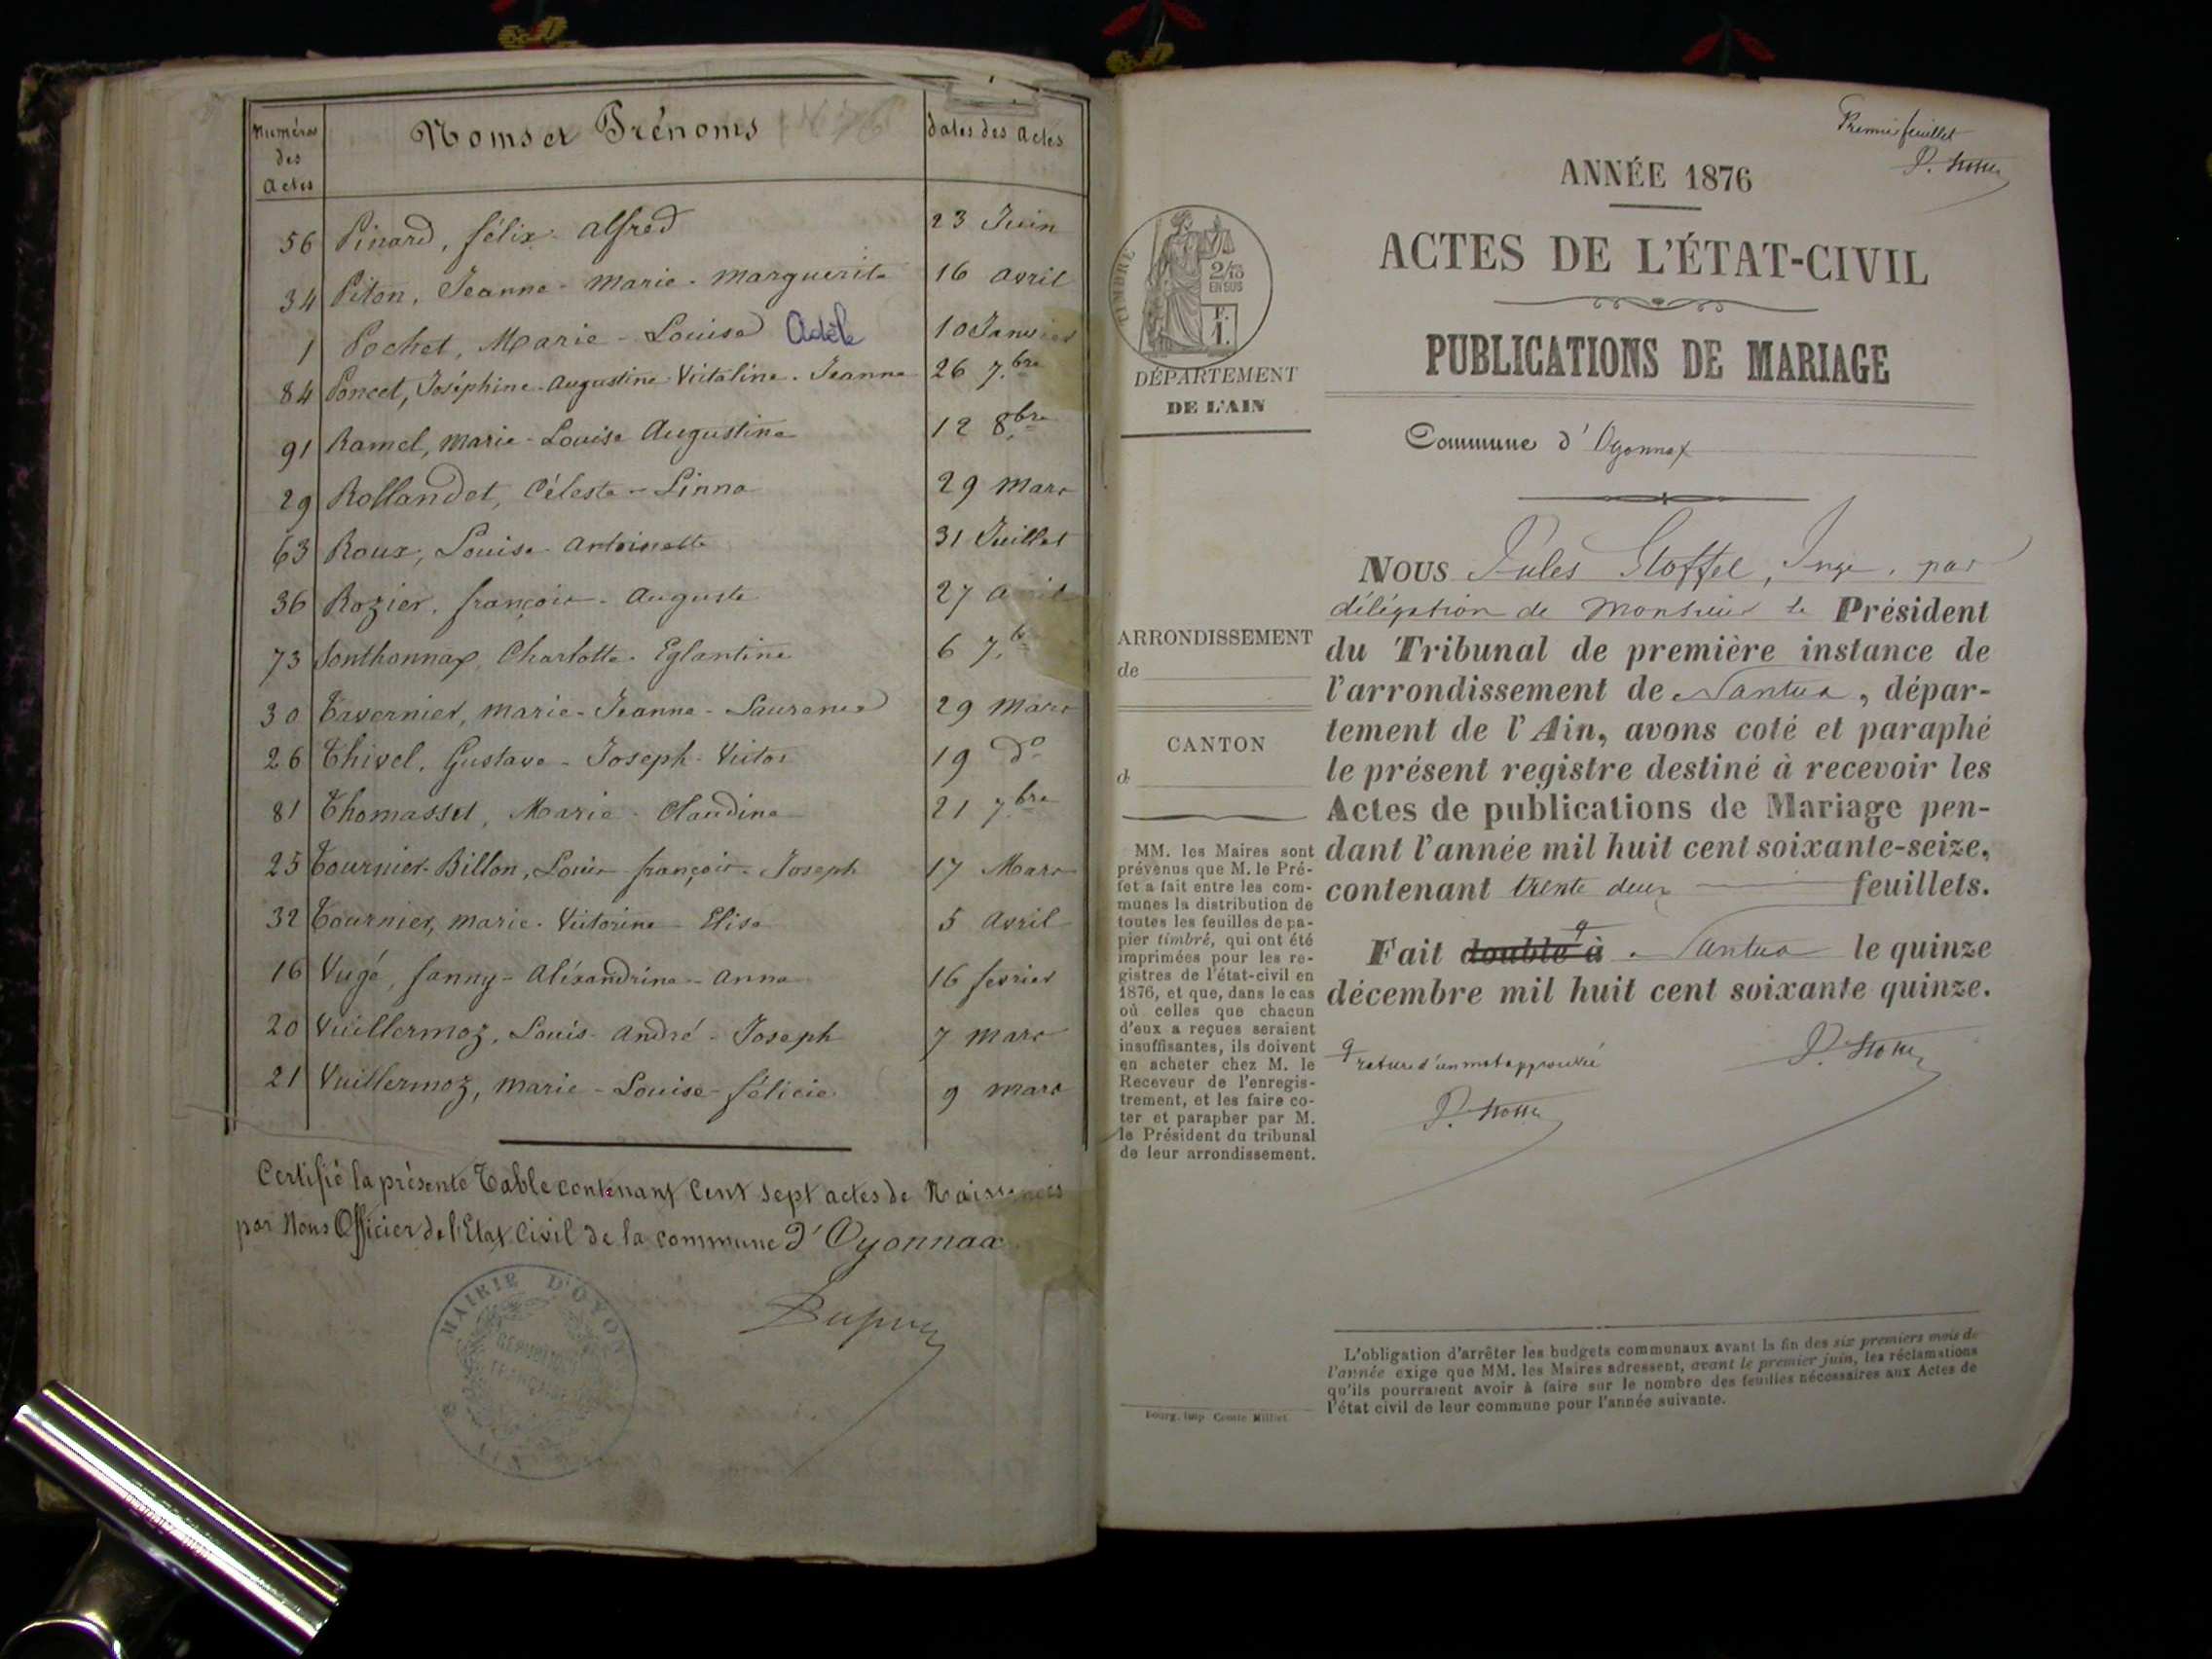 Numéros des Actes
Noms et Prénoms
Dates des Actes
56 Pinard, félix. Alfred 23 Juin
34 Piton, Jeanne - Marie - Marguerite 16 avril
1 Pochet, Marie - Louise Adèle 10 Janvier
84 Poncet, Joséphine. Augustine Victaline. Jeanne 26 7.bre
91 Ramel, Marie - Louise Augustine 12 8.bre
29 Rollandet, Céleste - Linna 29 Mars
63 Roux, Louise Antoinette 31 Juillet
36 Rozier, françois - Auguste 27 avril
73 Sonthonnax, Charlotte. Eglantine 6 7.b
30 Tavernier, Marie - Jeanne - Laurence 29 Mars
26 Thivel, Gustave - Joseph - Victor 19 d°
81 Thomasset, Marie - Claudine 21 7.bre
25 Tournier-Billon, Louis françois - Joseph 17 Mars
32 Tournier, Marie. Victorine - Elise 5 avril
16 Vugé, fanny - Aléxandrine - Anna 16 fevrier
20 Vuillermoz, Louis - André - Joseph 7 Mars
21 Vuillermoz, Marie - Louise - félicie 9 Mars
Certifié la présente Table contenant Cent sept actes de Naissances
par Nous Officier de l'Etat Civil de la commune d'Oyonnax
Dupuy
MAIRIE D'OYON
AIN
Premier feuillet
ANNÉE 1876
ACTES DE L'ÉTAT-CIVIL
PUBLICATIONS DE MARIAGE
TIMBRE
2/10
EN SUS
F.
1.
DÉPARTEMENT
DE L'AIN
Commune d'Oyonnax
ARRONDISSEMENT
de
CANTON
d
MM. les Maires sont
prévenus que M. le Pré-
fet a fait entre les com-
munes la distribution de
toutes les feuilles de pa-
pier timbré, qui ont été
imprimées pour les re-
gistres de l'état-civil en
1876, et que, dans le cas
où celles que chacun
d'eux a reçues seraient
insuffisantes, ils doivent
en acheter chez M. le
Receveur de l'enregis-
trement, et les faire co-
ter et parapher par M.
le Président du tribunal
de leur arrondissement.
Bourg, Imp. Comte Milliet
NOUS Jules Stoffel, Juge, par
délégation de Monsieur le Président
du Tribunal de première instance de
l'arrondissement de Nantua, dépar-
tement de l'Ain, avons coté et paraphé
le présent registre destiné à recevoir les
Actes de publications de Mariage pen-
dant l'année mil huit cent soixante-seize,
contenant trente deux feuillets.
Fait double à Nantua le quinze
décembre mil huit cent soixante quinze.
rature d'un mot approuvée
L'obligation d'arrêter les budgets communaux avant la fin des six premiers mois de
l'année exige que MM. les Maires adressent, avant le premier juin, les réclamations
qu'ils pourraient avoir à faire sur le nombre des feuilles nécessaires aux Actes de
l'état civil de leur commune pour l'année suivante.